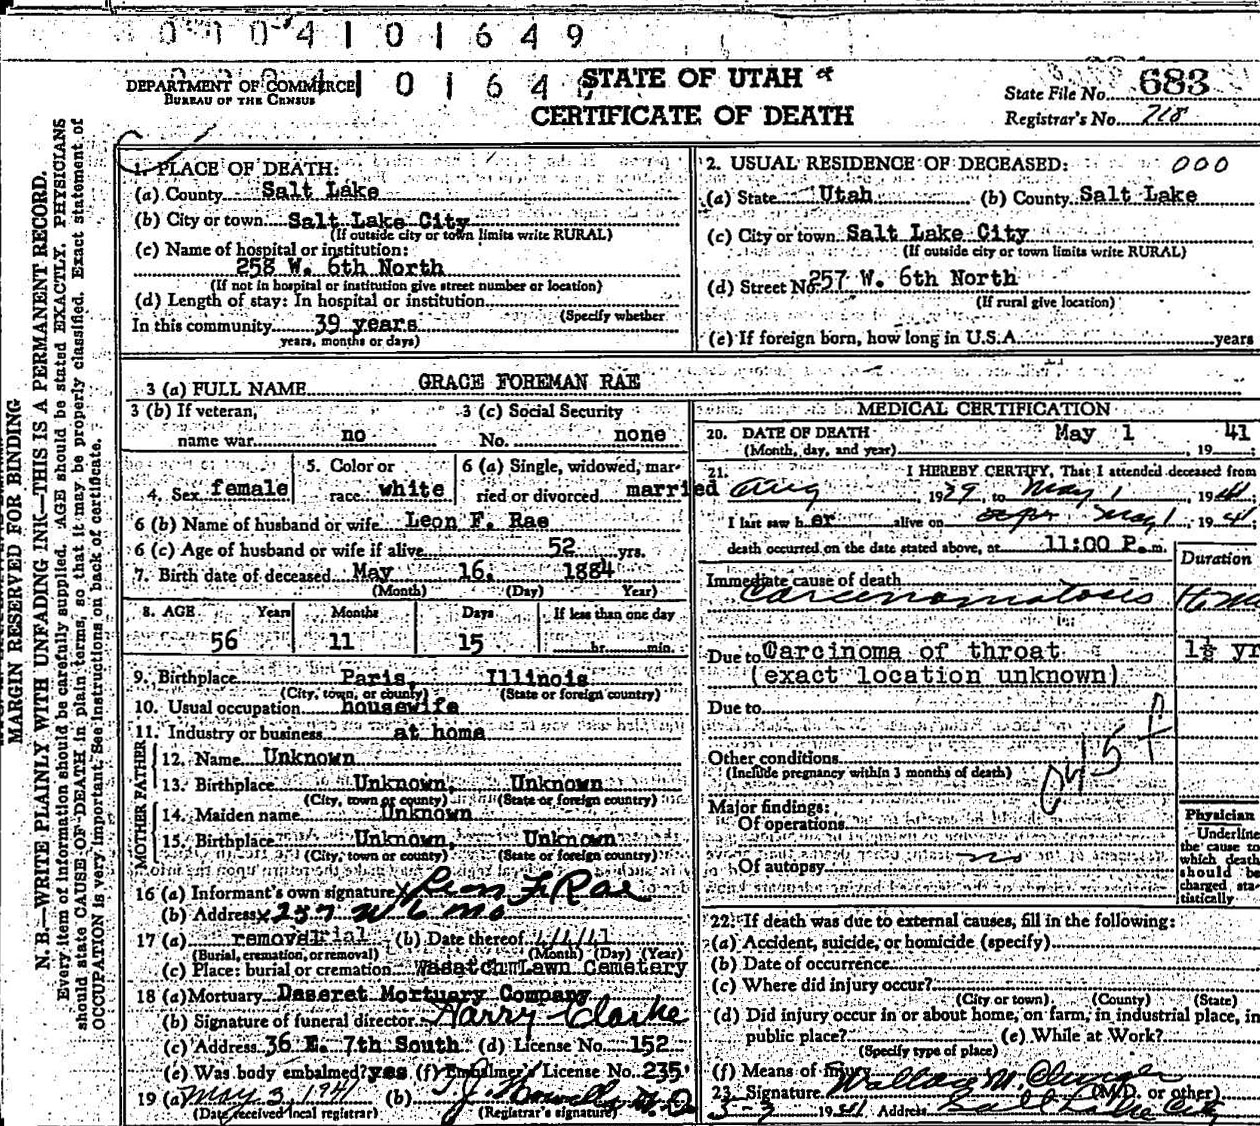 0004101649
STATE OF UTAH
DEPARTMENT OF COMMERCE
BUREAU OF THE CENSUS
CERTIFICATE OF DEATH
State File No. 683
Registrar's No. 718
MARGIN RESERVED FOR BINDING
N. B.—WRITE PLAINLY WITH UNFADING INK—THIS IS A PERMANENT RECORD.
Every item of information should be carefully supplied. AGE should be stated EXACTLY. PHYSICIANS
should state CAUSE OF DEATH in plain terms, so that it may be properly classified. Exact statement of
OCCUPATION is very important. See instructions on back of certificate.
1. PLACE OF DEATH:
(a) County Salt Lake
(b) City or town Salt Lake City
(If outside city or town limits write RURAL)
(c) Name of hospital or institution:
258 W. 6th North
(If not in hospital or institution give street number or location)
(d) Length of stay: In hospital or institution
(Specify whether
In this community 39 years
years, months or days)
2. USUAL RESIDENCE OF DECEASED: 000
(a) State Utah (b) County Salt Lake
(c) City or town Salt Lake City
(If outside city or town limits write RURAL)
(d) Street No. 257 W. 6th North
(If rural give location)
(e) If foreign born, how long in U.S.A. years
3 (a) FULL NAME GRACE FOREMAN RAE
3 (b) If veteran, 3 (c) Social Security
name war no No. none
4. Sex female 5. Color or race white 6 (a) Single, widowed, married or divorced married
6 (b) Name of husband or wife Leon F. Rae
6 (c) Age of husband or wife if alive 52 yrs.
7. Birth date of deceased May 16, 1884
(Month) (Day) Year)
8. AGE Years Months Days If less than one day
56 11 15 hr. min.
9. Birthplace Paris, Illinois
(City, town, or county) (State or foreign country)
10. Usual occupation housewife
11. Industry or business at home
FATHER
12. Name Unknown
13. Birthplace Unknown, Unknown
(City, town or county) (State or foreign country)
MOTHER
14. Maiden name Unknown
15. Birthplace Unknown, Unknown
(City, town or county) (State or foreign country)
16 (a) Informant's own signature x Leon F. Rae
(b) Address x 257 W 6 No
17 (a) (b) Date thereof
(Burial, cremation, or removal) (Month) (Day) (Year)
(c) Place: burial or cremation Wasatch Lawn Cemetery
18 (a) Mortuary Deseret Mortuary Company
(b) Signature of funeral director Harry Clarke
(c) Address 36 E. 7th South (d) License No. 152
(e) Was body embalmed? yes (f) Embalmer's License No. 235
19 (a) May 3, 1941 (b) M.D.
(Date received local registrar) (Registrar's signature)
MEDICAL CERTIFICATION
20. DATE OF DEATH May 1 41
(Month, day, and year) , 19
21. I HEREBY CERTIFY, That I attended deceased from
Aug , 1939, to May 1 , 1941
I last saw her alive on May 1, 1941
death occurred on the date stated above, at 11:00 P.m.
Duration
Immediate cause of death
Carcinomatosis
Due to Carcinoma of throat 1½ yr
(exact location unknown)
Due to
Other conditions
(Include pregnancy within 3 months of death)
045+
Major findings:
Of operations
Of autopsy no
Physician
Underline
the cause to
which death
should be
charged sta-
tistically
22. If death was due to external causes, fill in the following:
(a) Accident, suicide, or homicide (specify)
(b) Date of occurrence
(c) Where did injury occur?
(City or town) (County) (State)
(d) Did injury occur in or about home, on farm, in industrial place, in
public place? (e) While at Work?
(Specify type of place)
(f) Means of injury
23. Signature Wallace (M.D. or other)
5-3 1941 Address Salt Lake City